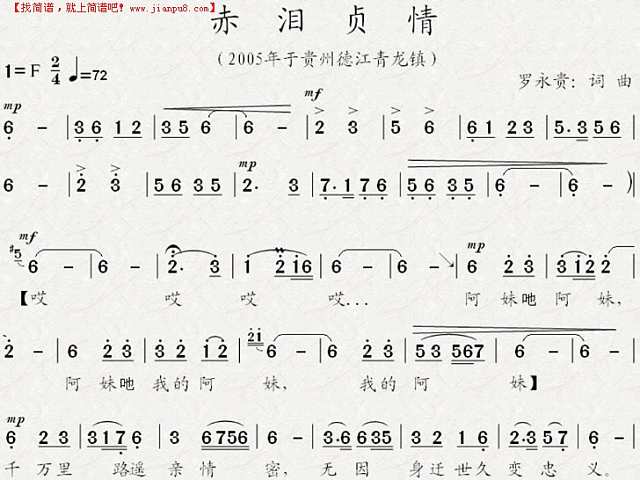 【找简谱，就上简谱吧! www.jianpu8.com】
赤泪贞情
（2005年于贵州德江青龙镇）
1=F 2/4 ♩=72
罗永贵：词 曲
mp mf
6 - | 3 6 1 2 | 3 5 6 6 - | 2 3 | 5 6 | 6 1 2 3 | 5·3 5 6 |
mp
6 - | 2 3 | 5 6 3 5 | 2· 3 | 7·1 7 6 | 5 6 3 5 | 6 - 6 - )
mf mp
#5 6 - | 6 - | 2· 3 | 1 2 1 6 | 6 - | 6 - | 6 2 3 | 3 1 2 2
【哎 哎 哎 哎... 阿 妹吔 阿 妹，
2 - | 6 2 3 | 3 2 1 2 | 2 1 6 - | 6 2 3 | 5 3 5 6 7 | 6 - | 6 -
阿 妹吔 我的 阿 妹， 我的 阿 妹】
mp
6 2 3 | 3 1 7 6 | 3 6 7 5 6 | 6 - | 3·6 6 3 5 | 3 2 1 6 | 2·3 5 7 | 6 -
千 万里 路遥 亲 情 密， 无 因 身迁 世久 变 忠 义。